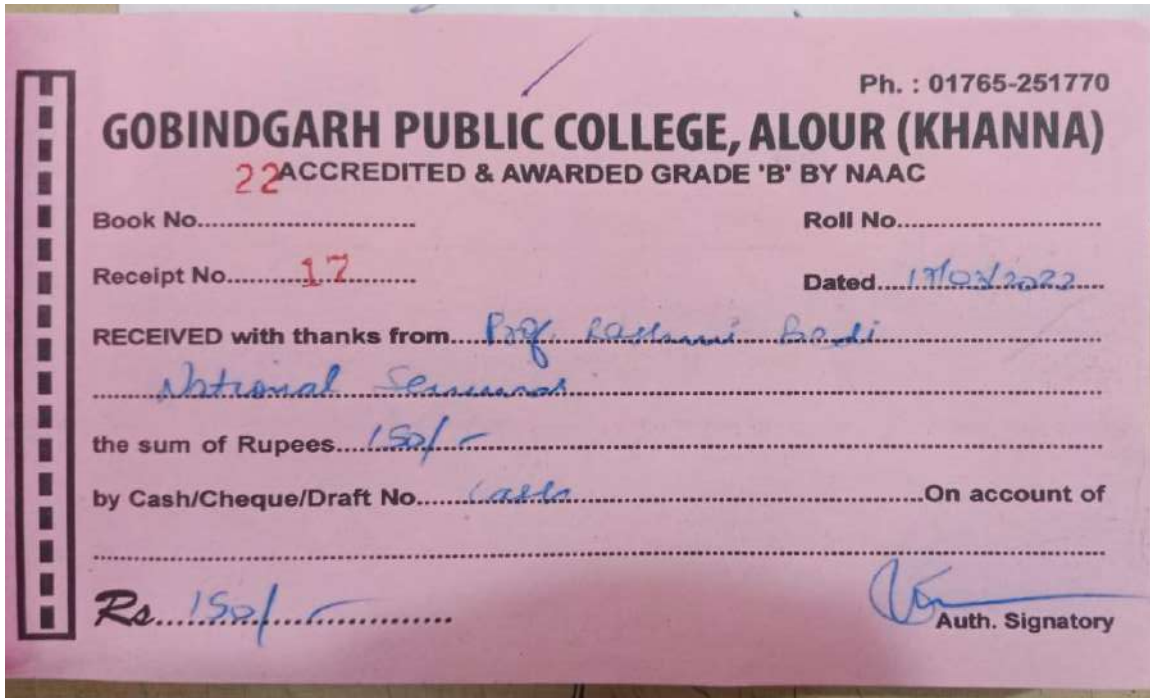 Ph. : 01765-251770
GOBINDGARH PUBLIC COLLEGE, ALOUR (KHANNA)
22 ACCREDITED & AWARDED GRADE 'B' BY NAAC
Book No........................... Roll No...........................
Receipt No.......17......... Dated....17/03/2022....
RECEIVED with thanks from.....Prof. Rashmi Bedi
National Seminar
the sum of Rupees....150/-
by Cash/Cheque/Draft No.......Cash.......On account of
Rs....150/-
Auth. Signatory